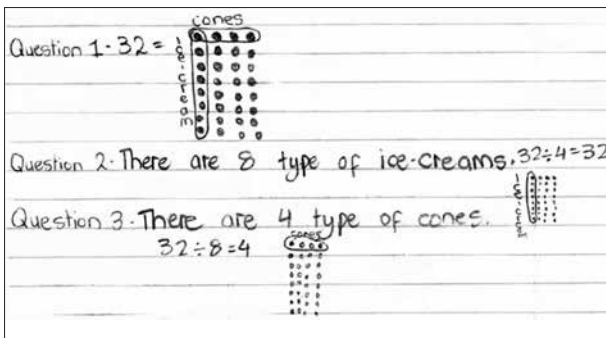 cones
Question 1. 32 =
ice-cream
Question 2. There are 8 type of ice-creams. 32÷4=32
Question 3. There are 4 type of cones.
32÷8=4
cones